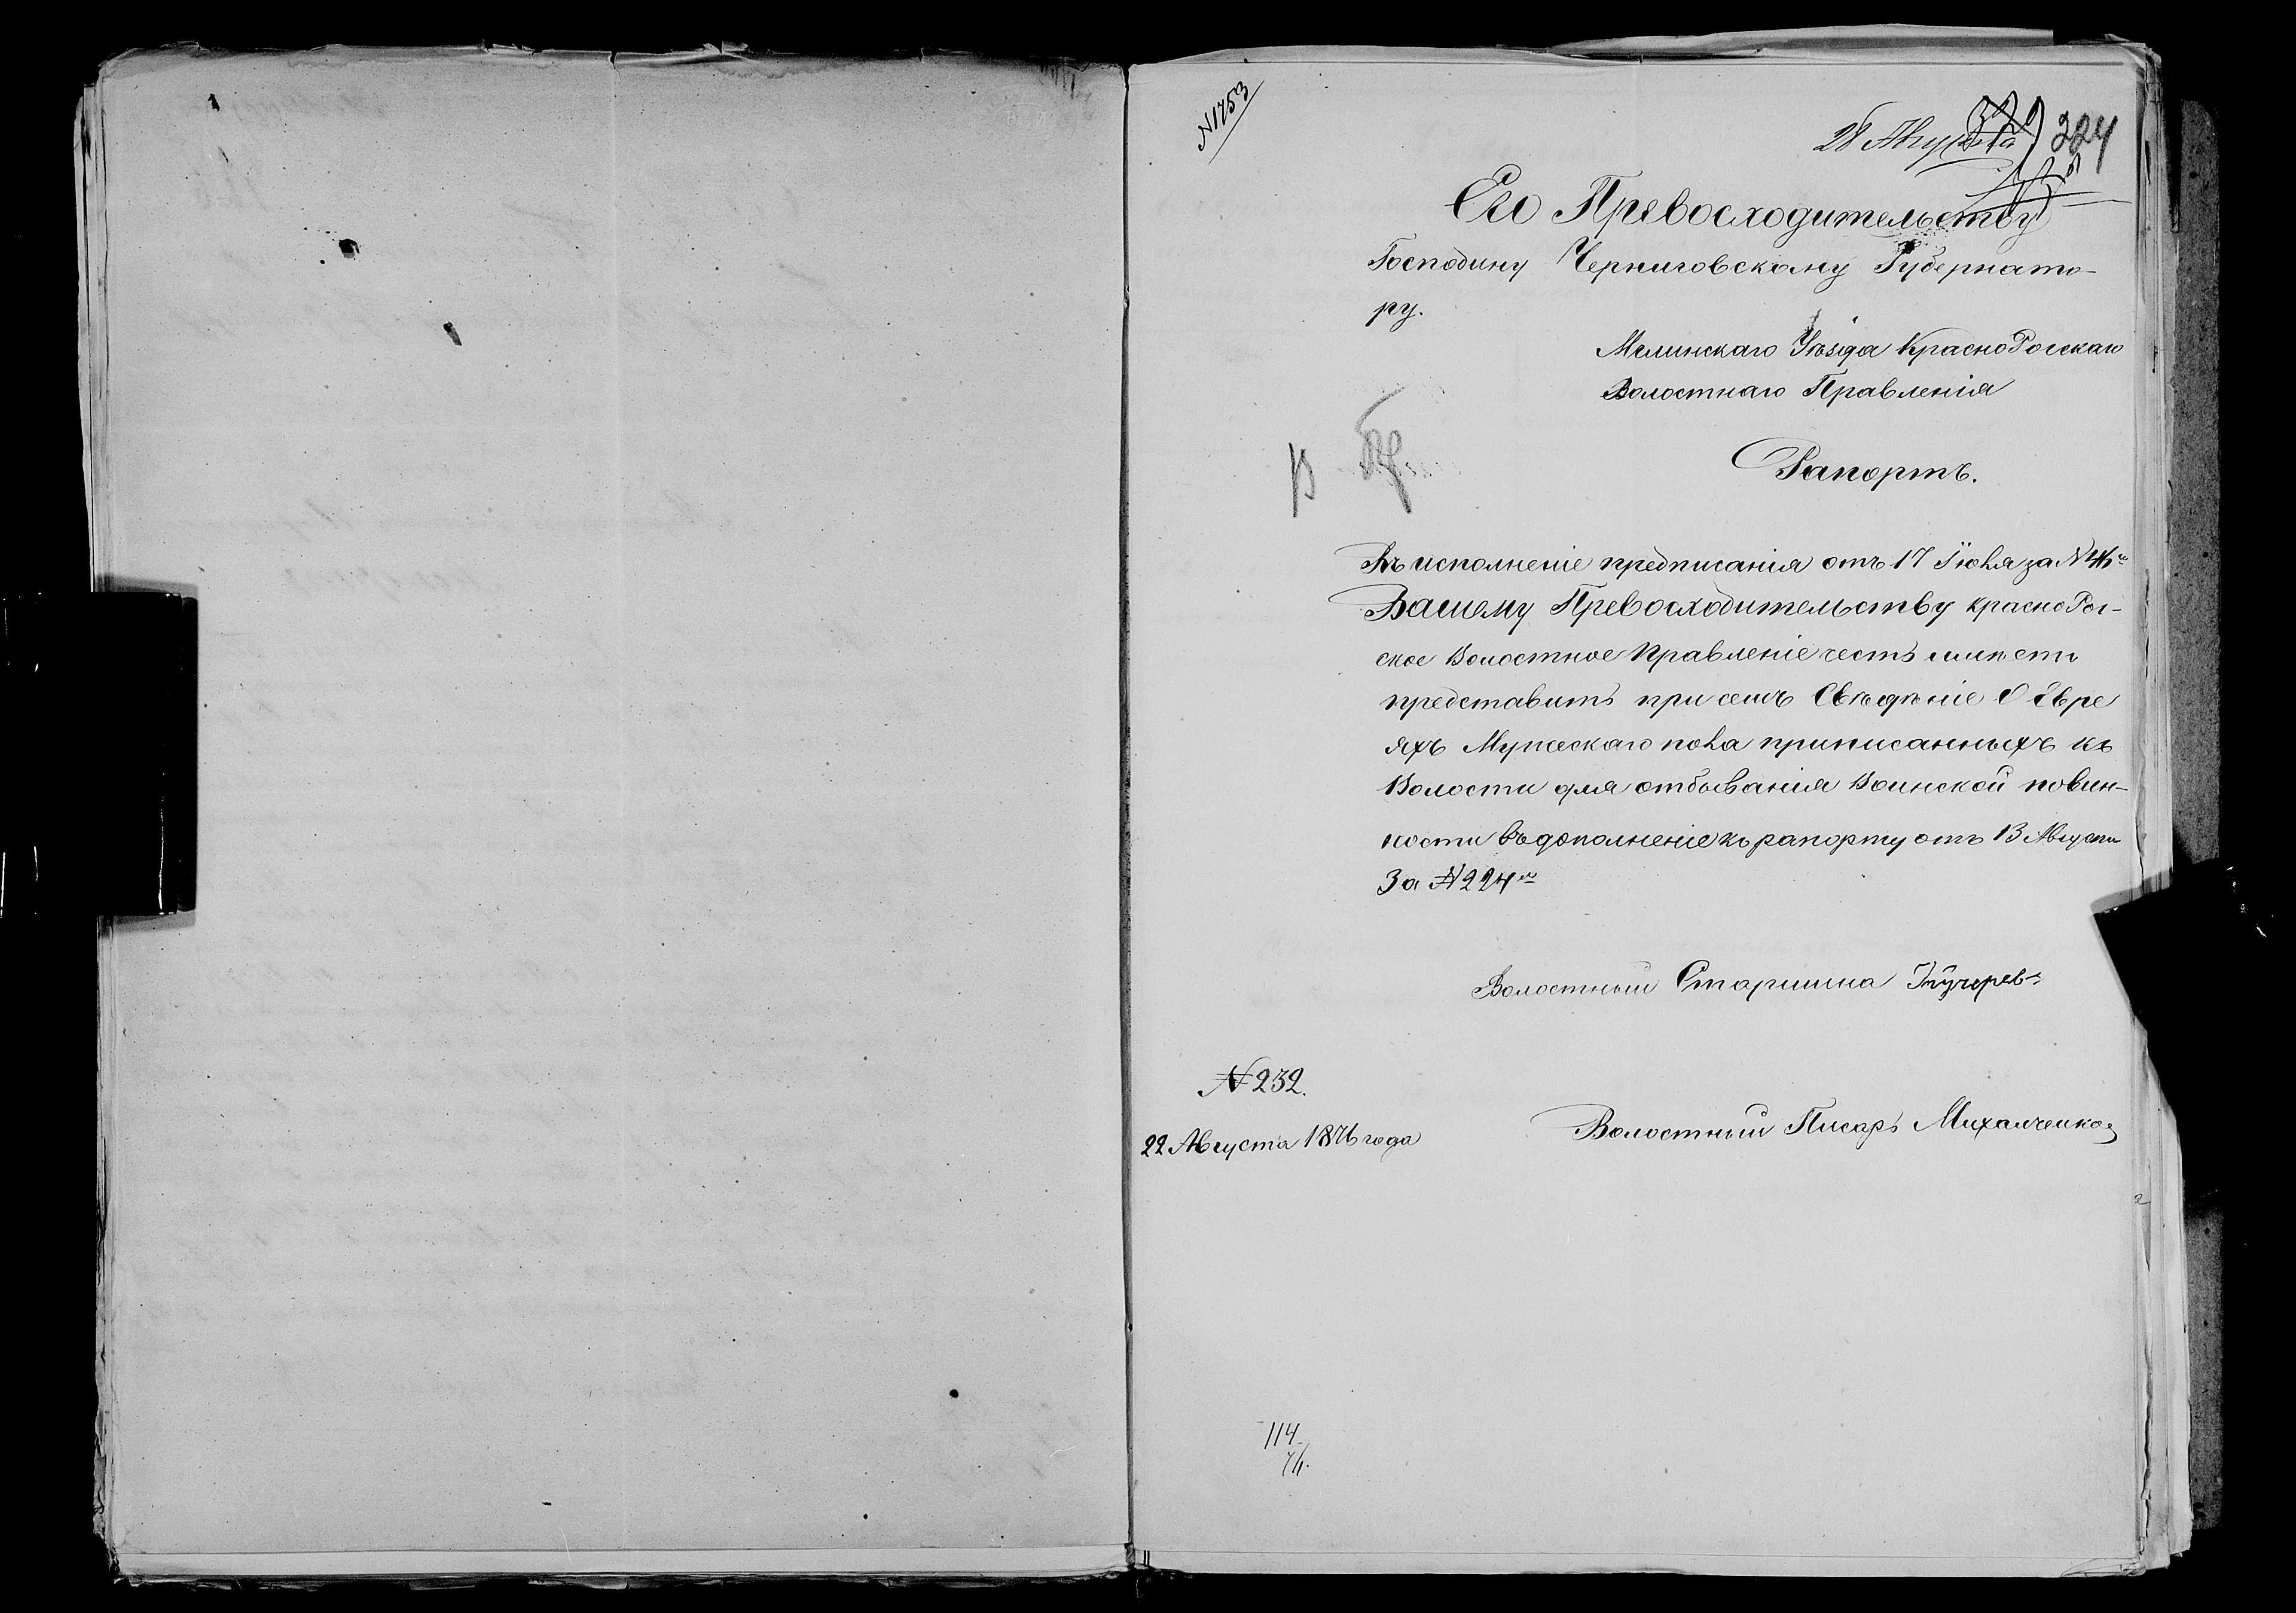 N1753
28 Августа
224
Его Превосходительству
Господину Черниговскому Губернато-
ру.
Мглинскаго Уѣзда КрасноРогскаго
Волостнаго Правленія
Рапортъ.
Въ исполненіе предписанія отъ 17 Іюня за N
Вашему Превосходительству КрасноРог-
ское Волостное Правленіе честь имѣетъ
представить при семъ Свѣдѣніе О Евре
яхъ Мужескаго пола приписанныхъ къ
Волости для отбыванія Воинской повин-
ности въ дополненіе къ рапорту отъ 13 Августа
За N224
Волостный Старшина
N232.
22 Августа 1876 года
Волостный Писарь Михалченко
114
76.